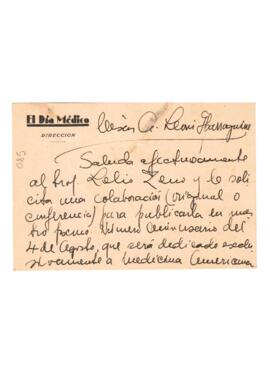 El Día Médico
DIRECCION
085
Saluda afectuosamente
al Prof. Lelio Zeno y le soli
cita una colaboración (original o
conferencia) para publicarla en nues
tro número aniversario del
4 de Agosto, que será dedicado exclu
sivamente a medicina Americana